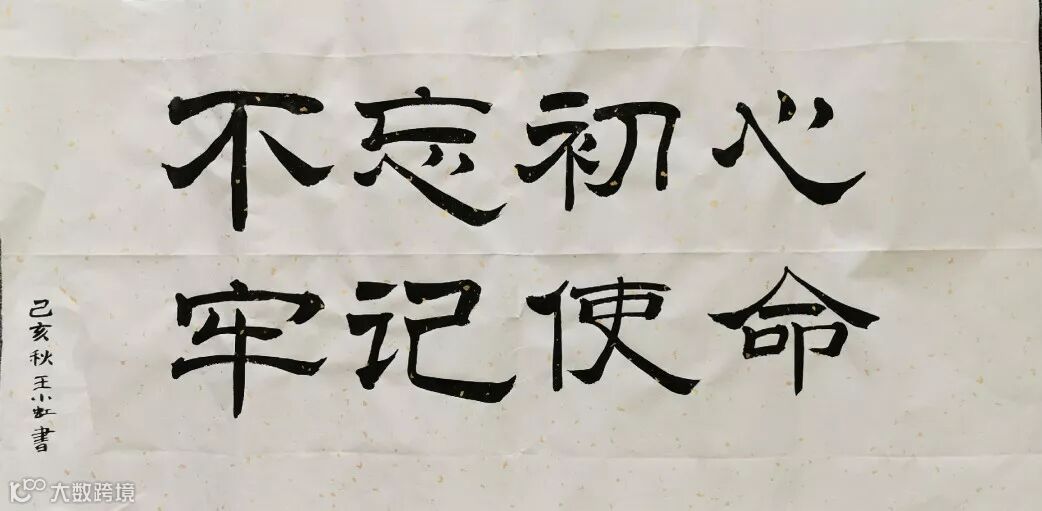 不忘初心
牢记使命
己亥秋王小虹書
大数跨境